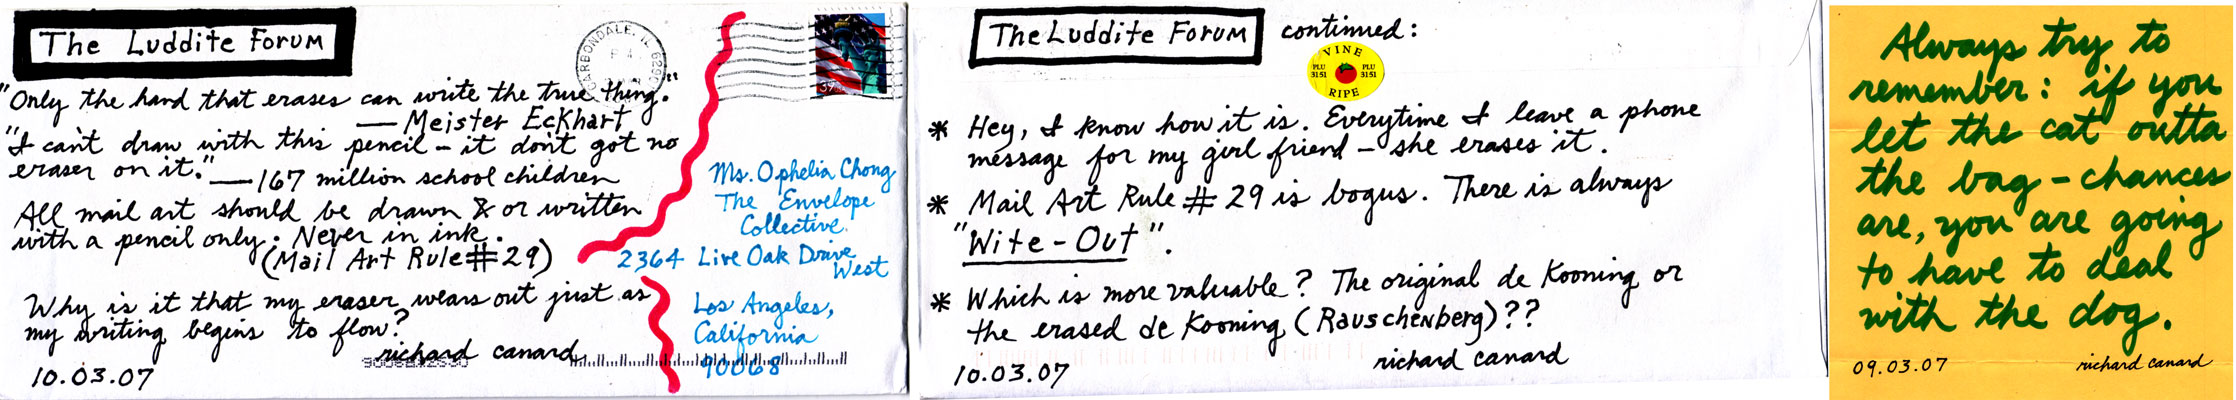 The Luddite Forum
CARBONDALE, IL
37
"Only the hand that erases can write the true thing."
— Meister Eckhart
"I can't draw with this pencil – it don't got no
eraser on it." — 167 million school children
All mail art should be drawn & or written
with a pencil only. Never in ink.
(Mail Art Rule # 29)
Why is it that my eraser wears out just as
my writing begins to flow?
richard canard
10.03.07
Ms. Ophelia Chong
The Envelope
Collective
2364 Live Oak Drive
West
Los Angeles,
California
90068
The Luddite Forum continued:
VINE
PLU 3151 PLU 3151
RIPE
* Hey, I know how it is. Everytime I leave a phone
message for my girl friend – she erases it.
* Mail Art Rule # 29 is bogus. There is always
"Wite-Out".
* Which is more valuable? The original de Kooning or
the erased de Kooning (Rauschenberg)??
richard canard
10.03.07
Always try to
remember: if you
let the cat outta
the bag – chances
are, you are going
to have to deal
with the dog.
09.03.07 richard canard